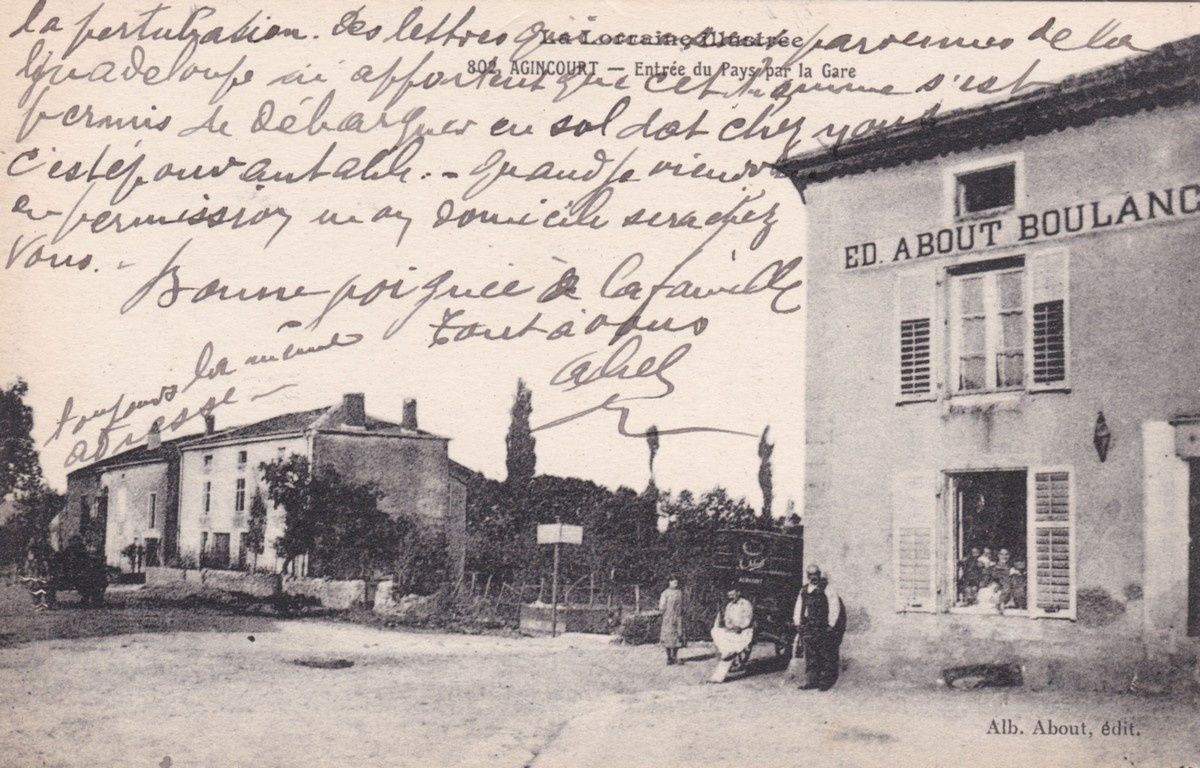 la pertubation. des lettres qui parvenues de la
La Lorraine Illustrée
Guadeloupe m'apportent que cet homme s'est
802. AGINCOURT — Entrée du Pays par la Gare
permis de débarquer en soldat chez vous
c'est épouvantable. - Quand je viendrai
en permission mon domicile sera chez
vous. -
Bonne poignée à la famille
Tout à vous
Abel
toujours la même
adresse -
ED. ABOUT BOULANG
AGINCOURT
Alb. About, édit.